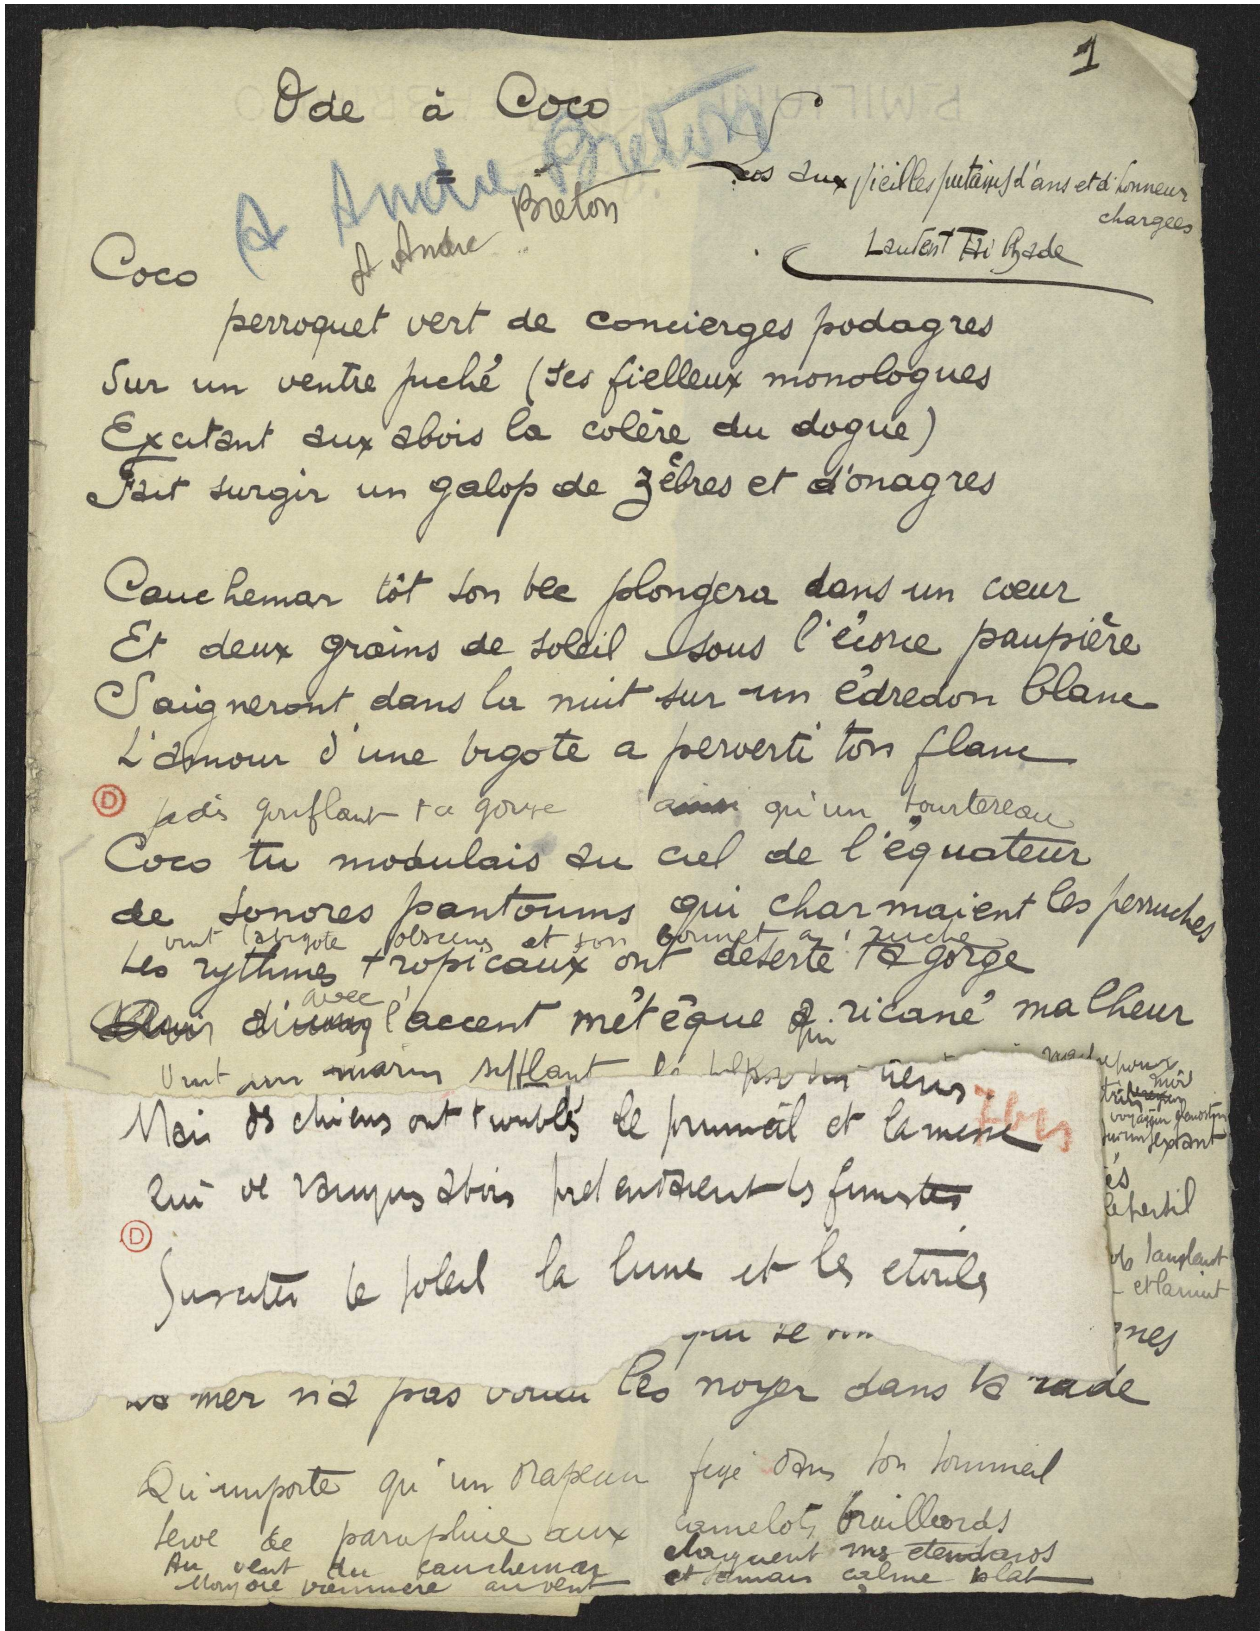 1
Ode à Coco
A André Breton
A André Breton
Los aux vieilles putains d'ans et d'honneur
chargées
Laurent Tailhade
Coco
perroquet vert de concierges podagres
Sur un ventre juché (ses fielleux monologues
Excitant aux abois la colère du dogue)
Fait surgir un galop de zèbres et d'onagres
Cauchemar tôt son bec plongera dans un cœur
Et deux grains de soleil sous l'écorce paupière
Saigneront dans la nuit sur un édredon blanc
L'amour d'une bigote a perverti ton flanc
D
jadis gonflant ta gorge ainsi qu'un tourtereau
Coco tu modulais au ciel de l'équateur
de sonores pantoums qui charmaient les perruches
vint la bigote obscene et son bonnet a ruche
Les rythmes tropicaux ont déserté ta gorge
avec l'accent métèque qui ricané malheur
Vint un marin sifflant
Mais des chiens ont troublé le sommeil et la messe
7bis
Qui de rauques abois
D
Susciter le soleil la lune et les etoiles
qui se
mer n'a pas voulu les noyer dans la rade
Qu'importe qu'un drapeau figé dans ton sommeil
serve de parapluie aux camelots braillards
Au vent du cauchemar claquent mes etendards
au vent et jamais calme plat